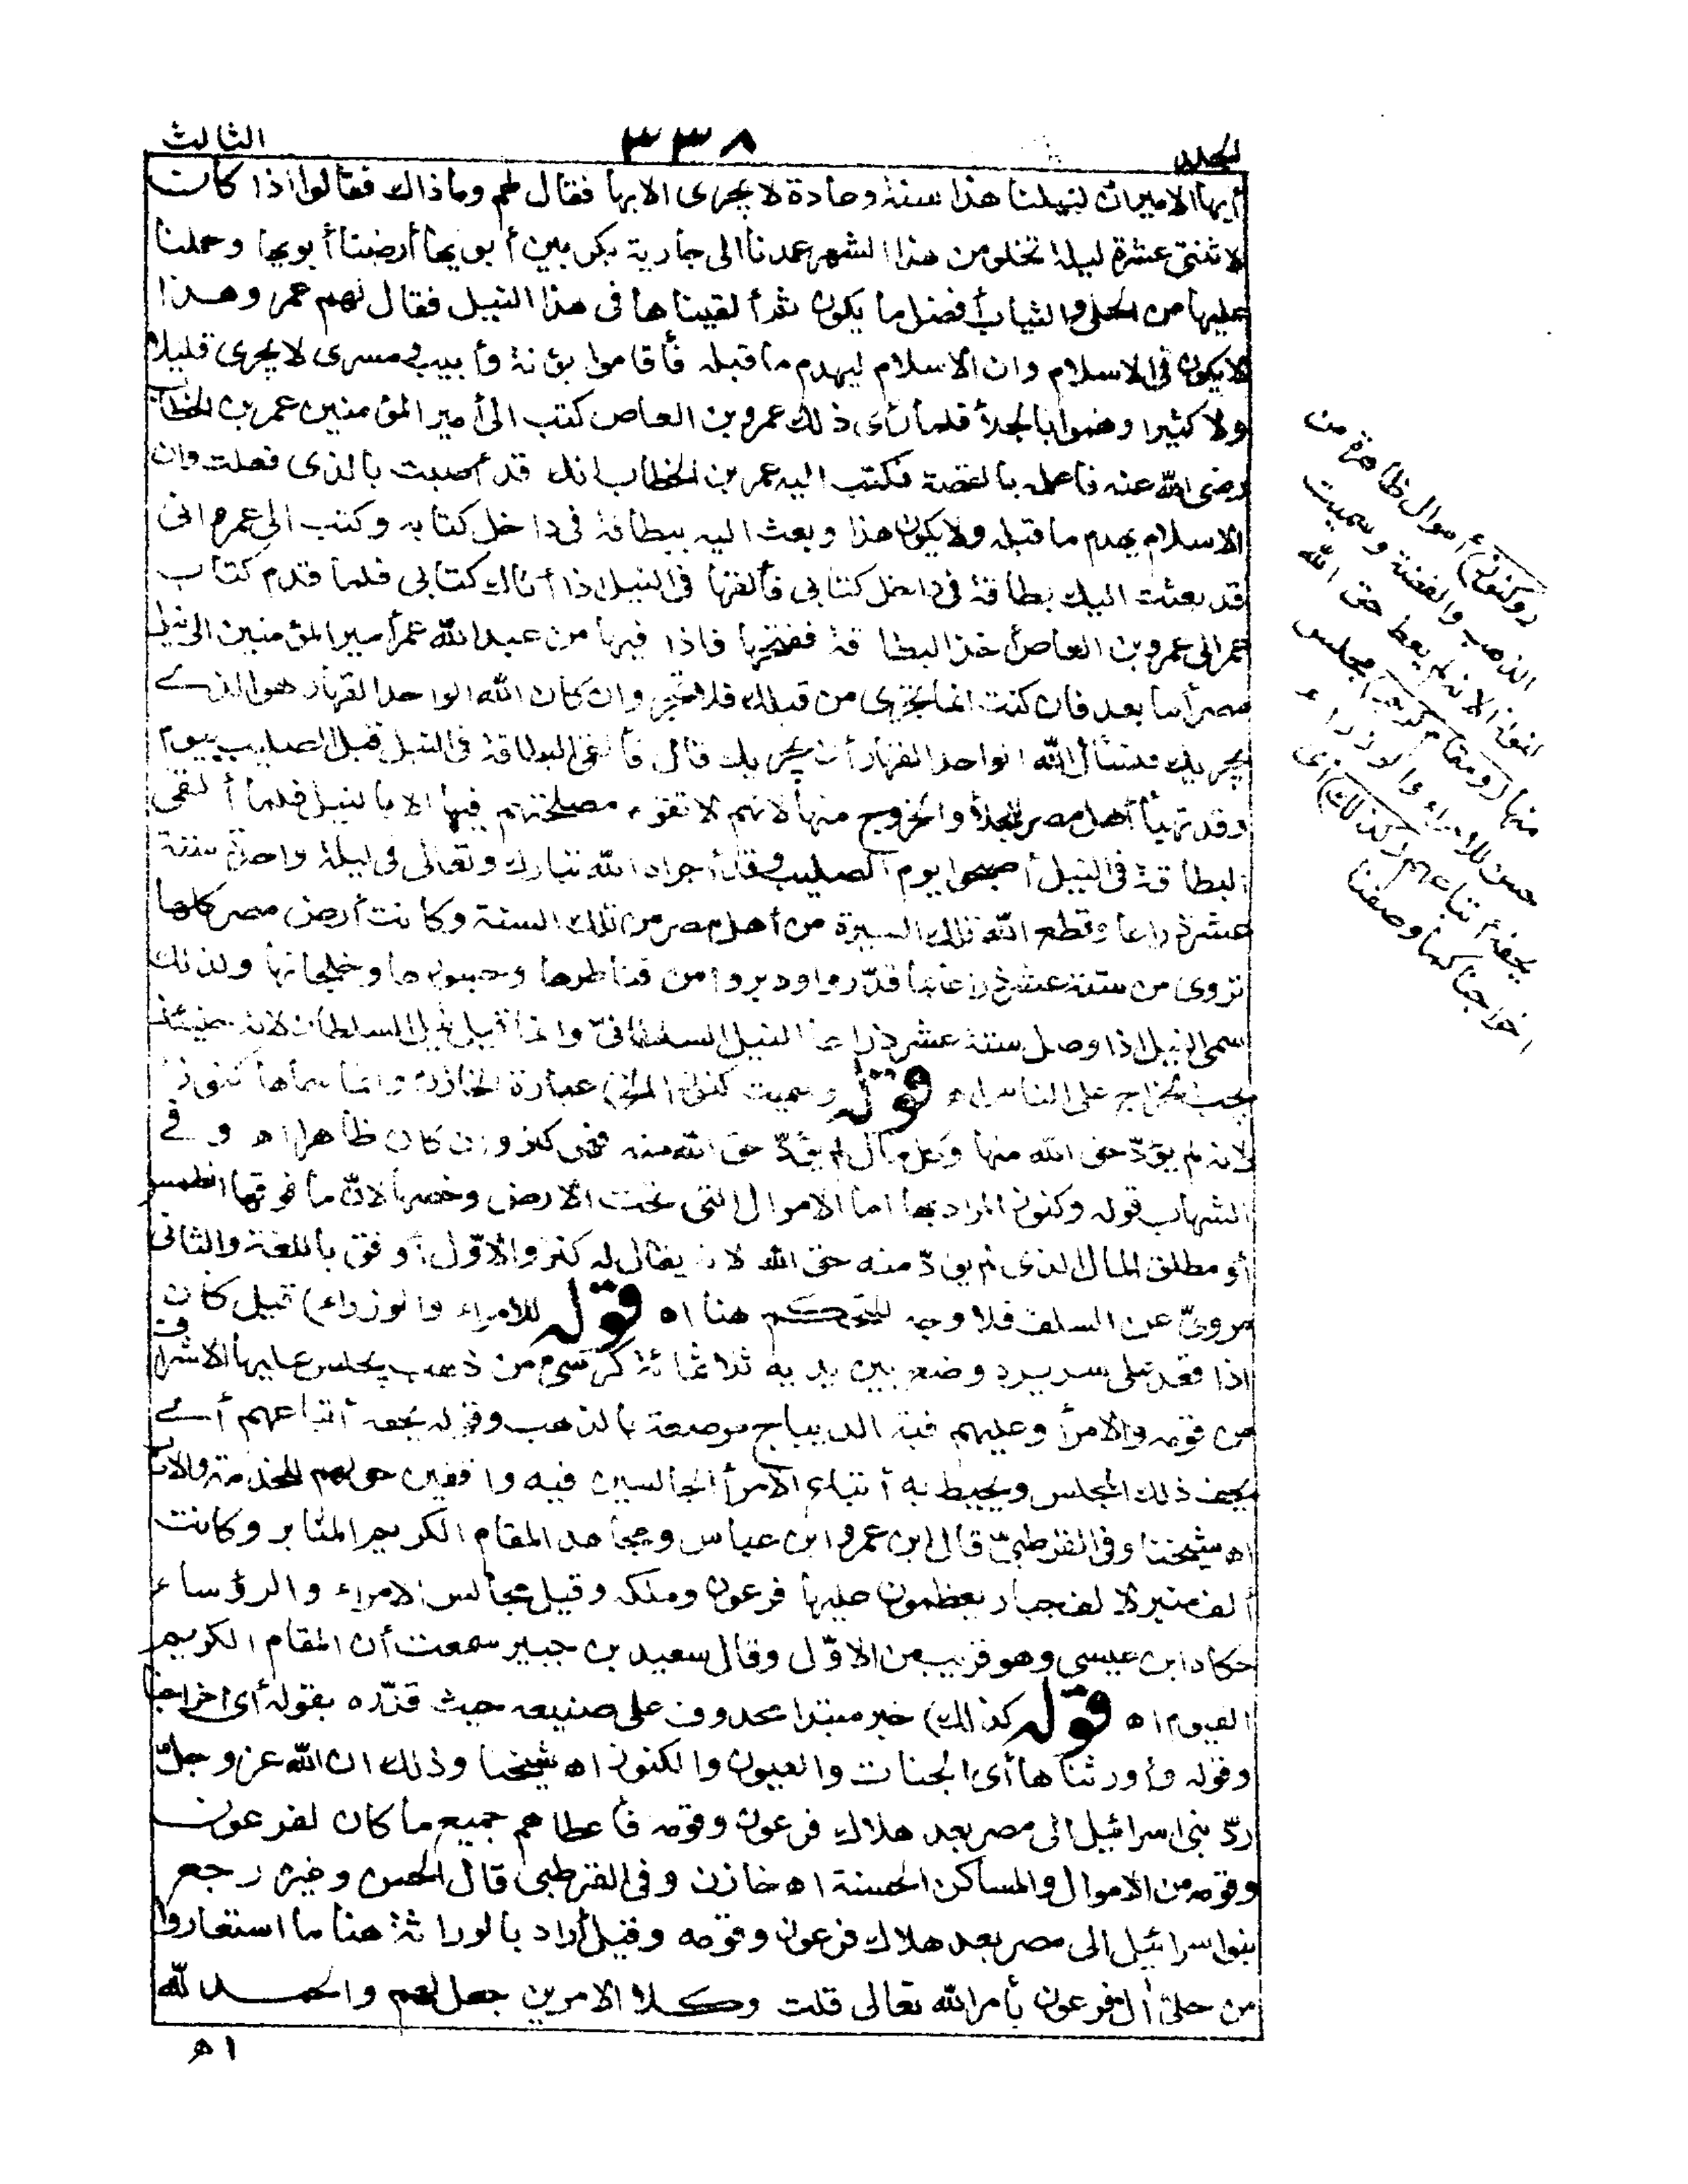 المجلد
٣٣٨
الثالث
أيها الامير ان لنيلنا هذا سنة وعادة لا يجرى الا بها فقال لهم وما ذاك فقالوا اذا كانت
لاثنتى عشرة ليلة تخلو من هذا الشهر عمدنا الى جارية بكر بين أبويها أرضينا أبويها وحملنا
عليها من الحلى والثياب أفضل ما يكون ثم ألقيناها فى هذا النيل فقال لهم عمرو هذا
لا يكون فى الاسلام وان الاسلام ليهدم ما قبله فأقاموا بؤنة وأبيب ومسرى لا يجرى قليلا
ولا كثيرا وهموا بالجلاء فلما رأى ذلك عمرو بن العاص كتب الى أمير المؤمنين عمر بن الخطاب
رضى الله عنه فاعلمه بالقصة فكتب اليه عمر بن الخطاب انك قد أصبت بالذى فعلت وان
الاسلام يهدم ما قبله ولا يكون هذا وبعث اليه ببطاقة فى داخل كتابه وكتب الى عمرو انى
قد بعثت اليك بطاقة فى داخل كتابى فألقها فى النيل اذا أتاك كتابى فلما قدم كتاب
عمر الى عمرو بن العاص أخذ البطاقة ففتحها فاذا فيها من عبد الله عمر أمير المؤمنين الى نيل
مصر أما بعد فان كنت انما تجرى من قبلك فلا تجر وان كان الله الواحد القهار هو الذى
يجريك فنسأل الله الواحد القهار أن يجريك قال فألقى البطاقة فى النيل قبل الصليب بيوم
وقد تهيأ أهل مصر للجلاء والخروج منها لانهم لا تقوم مصلحتهم فيها الا بالنيل فلما ألقى
البطاقة فى النيل أصبحوا يوم الصليب وقد أجراه الله تبارك وتعالى فى ليلة واحدة ستة
عشر ذراعا وقطع الله تلك السيرة من أهل مصر من تلك السنة وكانت أرض مصر كلها
تروى من ستة عشر ذراعا بما قدّروا ودبروا من قناطرها وجسورها وخلجانها ولذلك
سمى النيل اذا وصل ستة عشر ذراعا النيل السلطانىّ وانما قيل نيل السلطان لانه حينئذ
يجب الخراج على الناس اه قوله وسميت كنوزا الخ) عبارة الخازن وانما سماها كنوزا
لانه لم يؤدّ حق الله منها وكل مال لم يؤدّ حق الله منه فهو كنز وان كان ظاهرا اه وفى
الشهاب قوله وكنوز المراد بها اما الاموال التى تحت الارض وخصها لانّ ما فوقها انطمس
أو مطلق المال الذى لم يؤدّ منه حق الله لانه يقال له كنز والاوّل أوفق باللغة والثانى
مروىّ عن السلف فلا وجه للتحكم هنا اه قوله للامراء والوزراء) قيل كان
اذا قعد على سريره وضع بين يديه ثلاثمائة كرسى من ذهب يجلس عليها الاشراف
من قومه والامراء وعليهم قبة الديباج مرصعة بالذهب وقوله يحفه أتباعهم أى
يحف ذلك المجلس ويحيط به أتباع الامراء الجالسين فيه واقفين حولهم للخدمة والادب
اه شيخنا وفى القرطبىّ قال ابن عمر وابن عباس ومجاهد المقام الكريم المنابر وكانت
ألف منبر لالف جبار يعظمون عليها فرعون وملكه وقيل مجالس الامراء والرؤساء
حكاه ابن عيسى وهو قريب من الاوّل وقال سعيد بن جبير سمعت أن المقام الكريم
الفيوم اه قوله كذلك) خبر مبتدا محذوف على صنيعه حيث قدّره بقوله أى اخراجنا
وقوله وأورثناها أى الجنات والعيون والكنوز اه شيخنا وذلك ان الله عز وجلّ
ردّ بنى اسرائيل الى مصر بعد هلاك فرعون وقومه فأعطاهم جميع ما كان لفرعون
وقومه من الاموال والمساكن الحسنة اه خازن وفى القرطبى قال الحسن وغيره رجع
بنو اسرائيل الى مصر بعد هلاك فرعون وقومه وقيل أراد بالوراثة هنا ما استعاروا
من حلى آل فرعون بأمر الله تعالى قلت وكلا الامرين حصل لهم والحمد لله
اه
(وكنوز) أموال ظاهرة من
الذهب والفضة وسميت
كنوزا لانه لم يعط حق الله
منها (ومقام كريم) مجلس
حسن للامراء والوزراء
يحفه أتباعهم (كذلك) أى
اخراجنا كما وصفنا